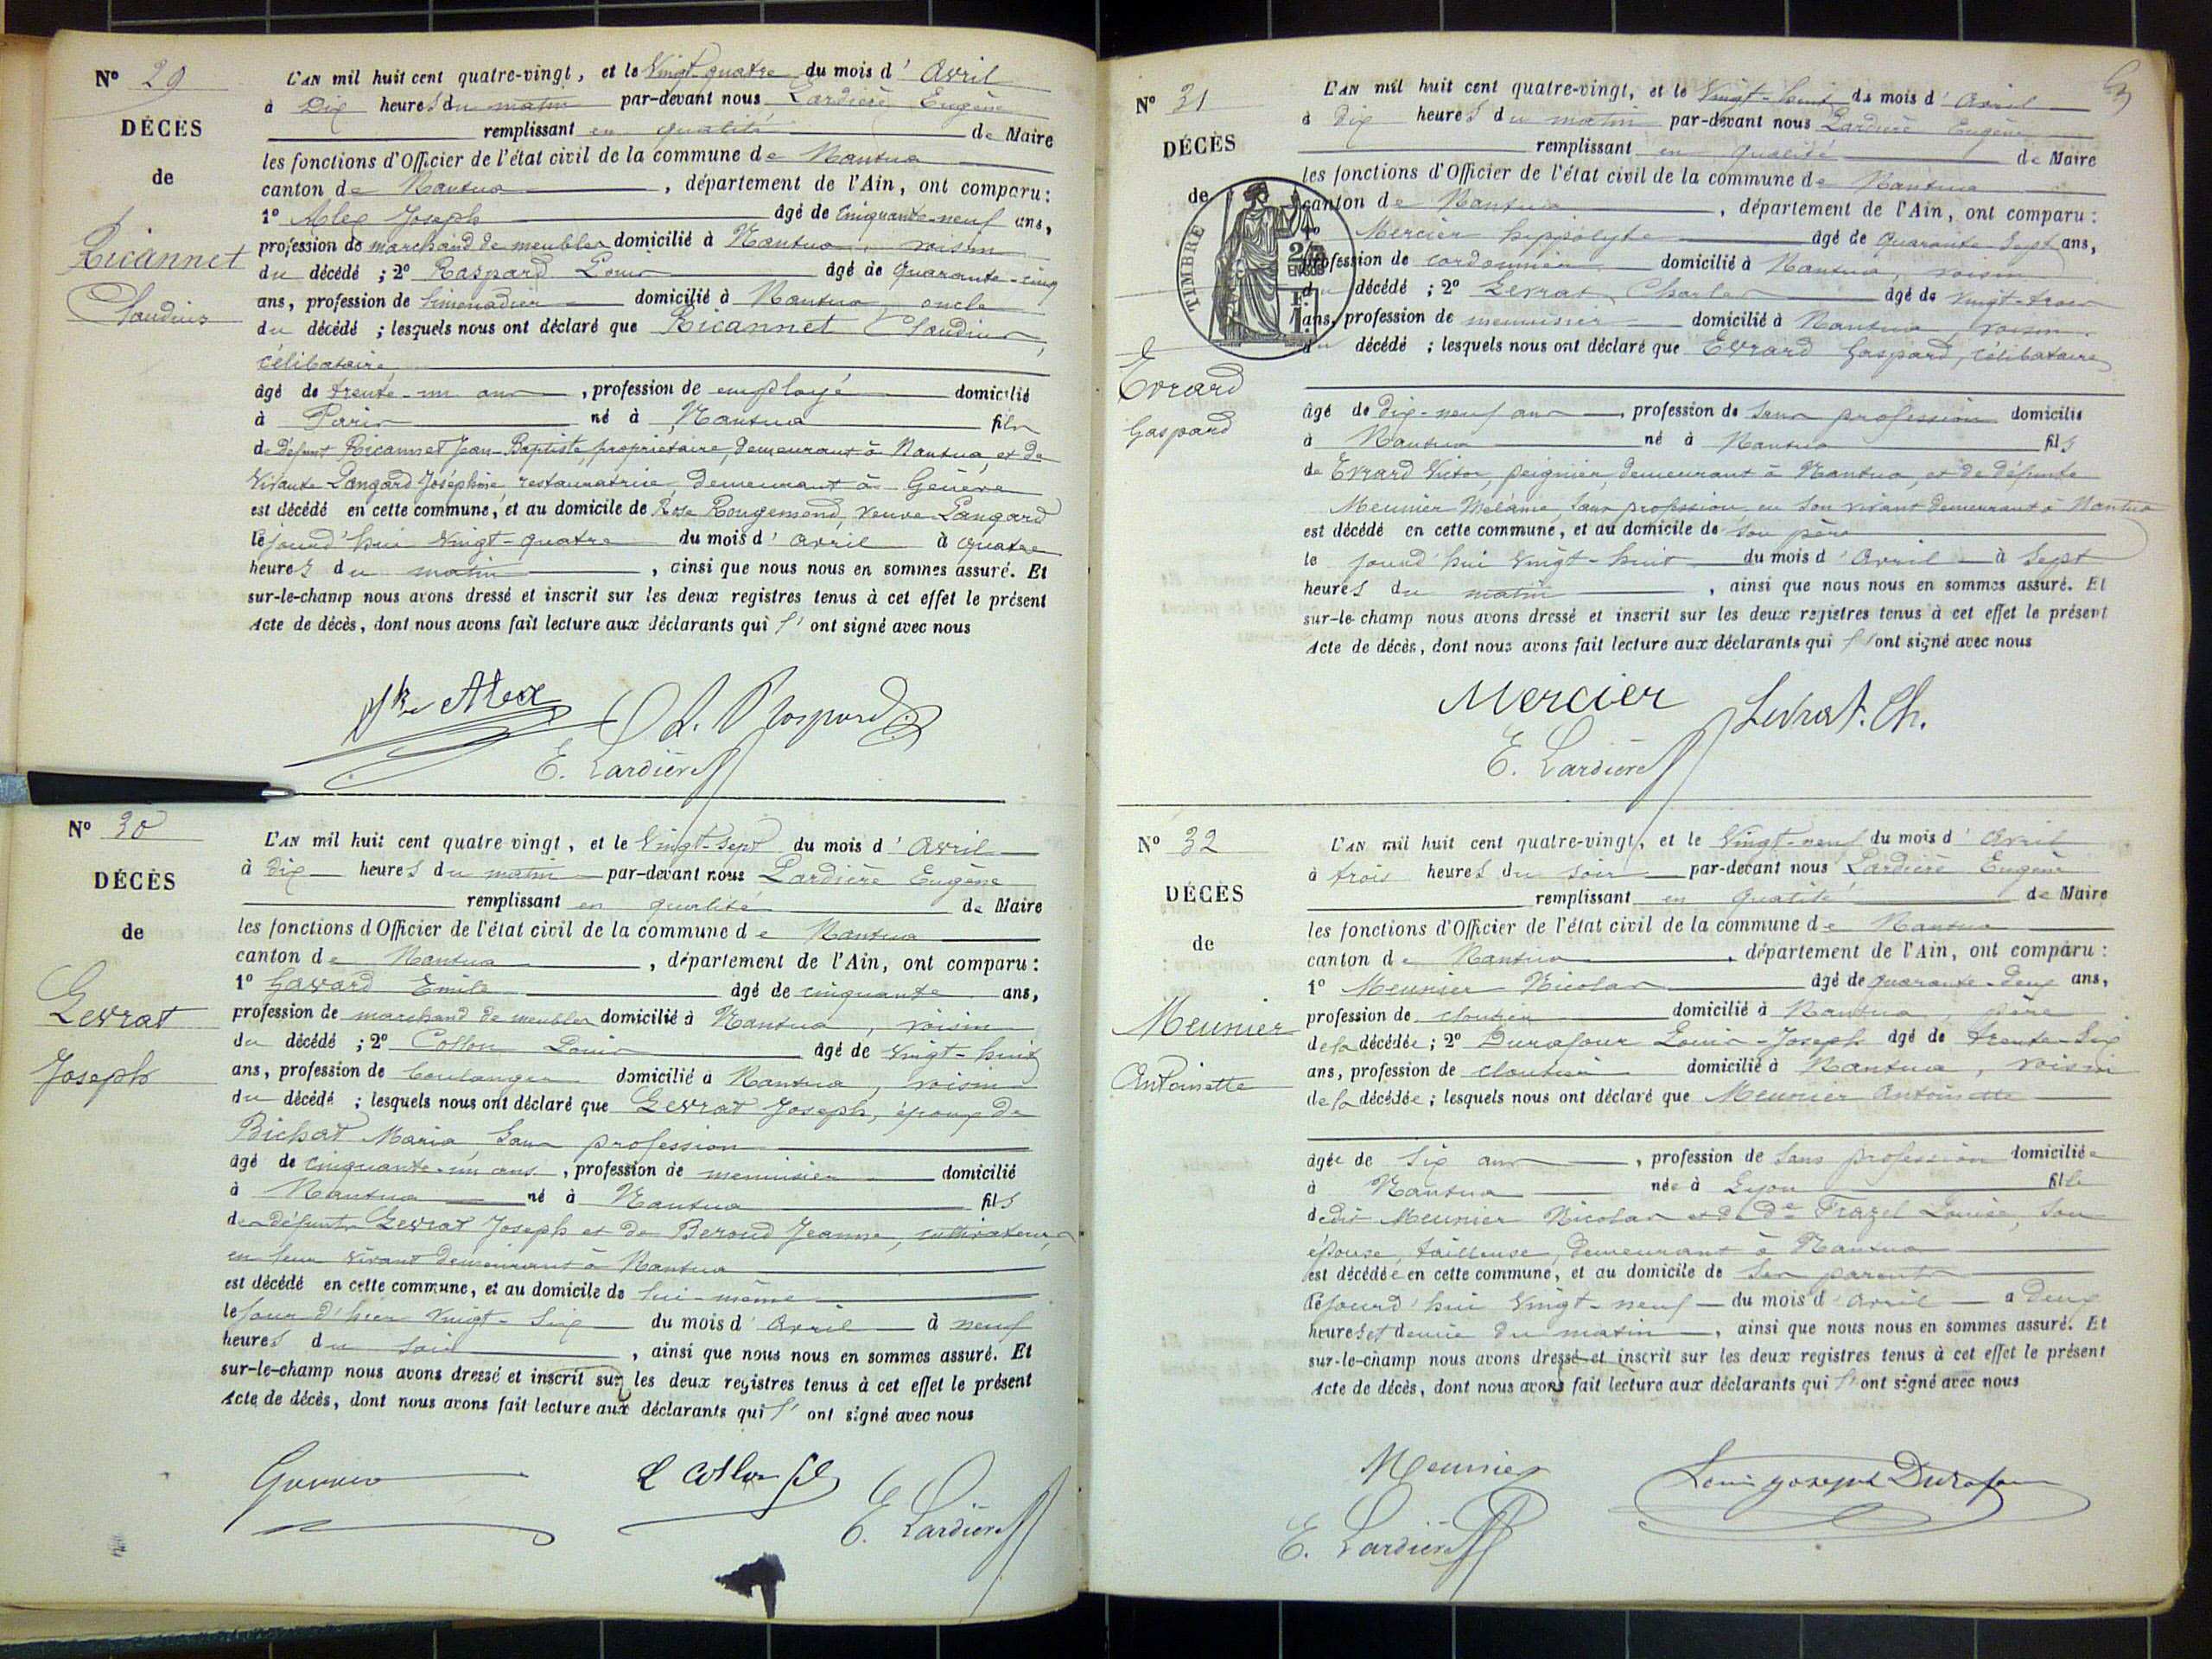 N° 29
DÉCÈS
de
Ricannet
Claudius
L'AN mil huit cent quatre-vingt, et le Vingt quatre du mois d'Avril
à Dix heures du matin par-devant nous Lardière Eugène
remplissant en qualité de Maire
les fonctions d'Officier de l'état civil de la commune de Nantua
canton de Nantua, département de l'Ain, ont comparu:
1° Alex Joseph âgé de Cinquante-neuf ans,
profession de marchand de meubles domicilié à Nantua, voisin
du décédé; 2° Raspard Louis âgé de quarante-cinq
ans, profession de limonadier domicilié à Nantua, oncle
du décédé; lesquels nous ont déclaré que Ricannet Claudius,
célibataire
âgé de trente-un ans, profession de employé domicilié
à Paris né à Nantua fils
de défunt Ricannet Jean-Baptiste, propriétaire, demeurant à Nantua, et de
vivante Langard Joséphine, restauratrice, demeurant à Genève
est décédé en cette commune, et au domicile de Rose Rougemond, veuve Langard
le jourd'hui Vingt-quatre du mois d'avril à quatre
heures du matin, ainsi que nous nous en sommes assuré. Et
sur-le-champ nous avons dressé et inscrit sur les deux registres tenus à cet effet le présent
Acte de décès, dont nous avons fait lecture aux déclarants qui l'ont signé avec nous
Alex L. Raspard
E. Lardière
N° 30
DÉCÈS
de
Levrat
Joseph
L'AN mil huit cent quatre-vingt, et le Vingt-sept du mois d'Avril
à dix heures du matin par-devant nous Lardière Eugène
remplissant en qualité de Maire
les fonctions d'Officier de l'état civil de la commune de Nantua
canton de Nantua, département de l'Ain, ont comparu:
1° Gavard Emile âgé de cinquante ans,
profession de marchand de meubles domicilié à Nantua, voisin
du décédé; 2° Collon Louis âgé de Vingt-huit
ans, profession de boulanger domicilié à Nantua, voisin
du décédé; lesquels nous ont déclaré que Levrat Joseph, époux de
Bichat Maria, sans profession
âgé de cinquante-un ans, profession de menuisier domicilié
à Nantua né à Nantua fils
de défunts Levrat Joseph et de Beroud Jeanne, cultivateurs,
en leur vivant demeurant à Nantua
est décédé en cette commune, et au domicile de lui-même
le jour d'hier Vingt-Six du mois d'Avril à neuf
heures du soir, ainsi que nous nous en sommes assuré. Et
sur-le-champ nous avons dressé et inscrit sur les deux registres tenus à cet effet le présent
Acte de décès, dont nous avons fait lecture aux déclarants qui l'ont signé avec nous
L Collon fils E. Lardière
N° 31
DÉCÈS
de
TIMBRE
Evrard
Gaspard
L'AN mil huit cent quatre-vingt, et le Vingt-huit du mois d'Avril
à dix heures du matin par-devant nous Lardière Eugène
remplissant en qualité de Maire
les fonctions d'Officier de l'état civil de la commune de Nantua
canton de Nantua, département de l'Ain, ont comparu:
1° Mercier hippolyte âgé de quarante-Sept ans,
profession de cordonnier domicilié à Nantua, voisin
du décédé; 2° Levrat Charles âgé de vingt-trois
ans, profession de menuisier domicilié à Nantua, voisin
du décédé; lesquels nous ont déclaré que Evrard Gaspard, célibataire
âgé de dix-neuf ans, profession de Sans profession domicilié
à Nantua né à Nantua fils
de Evrard Victor, peignier, demeurant à Nantua, et de défunte
Meunier Mélanie, Sans profession, en son vivant demeurant à Nantua
est décédé en cette commune, et au domicile de Son père
le jourd'hui Vingt-huit du mois d'Avril à Sept
heures du matin, ainsi que nous nous en sommes assuré. Et
sur-le-champ nous avons dressé et inscrit sur les deux registres tenus à cet effet le présent
Acte de décès, dont nous avons fait lecture aux déclarants qui l'ont signé avec nous
Mercier Levrat. Ch.
E. Lardière
N° 32
DÉCÈS
de
Meunier
Antoinette
L'AN mil huit cent quatre-vingt, et le Vingt-neuf du mois d'Avril
à trois heures du soir par-devant nous Lardière Eugène
remplissant en qualité de Maire
les fonctions d'Officier de l'état civil de la commune de Nantua
canton de Nantua, département de l'Ain, ont comparu:
1° Meunier Nicolas âgé de quarante-deux ans,
profession de cloutier domicilié à Nantua, père
de la décédée; 2° Durafour Louis-Joseph âgé de trente-Six
ans, profession de cloutier domicilié à Nantua, voisin
de la décédée; lesquels nous ont déclaré que Meunier Antoinette
âgée de Six ans, profession de Sans profession domiciliée
à Nantua née à Lyon fille
dedit Meunier Nicolas et de de Frazel Louise, Son
épouse, tailleuse, demeurant à Nantua
est décédée en cette commune, et au domicile de Ses parents
le jourd'hui Vingt-neuf du mois d'Avril à Deux
heures et demie du matin, ainsi que nous nous en sommes assuré. Et
sur-le-champ nous avons dressé et inscrit sur les deux registres tenus à cet effet le présent
Acte de décès, dont nous avons fait lecture aux déclarants qui l'ont signé avec nous
Meunier Louis Joseph Durafour
E. Lardière